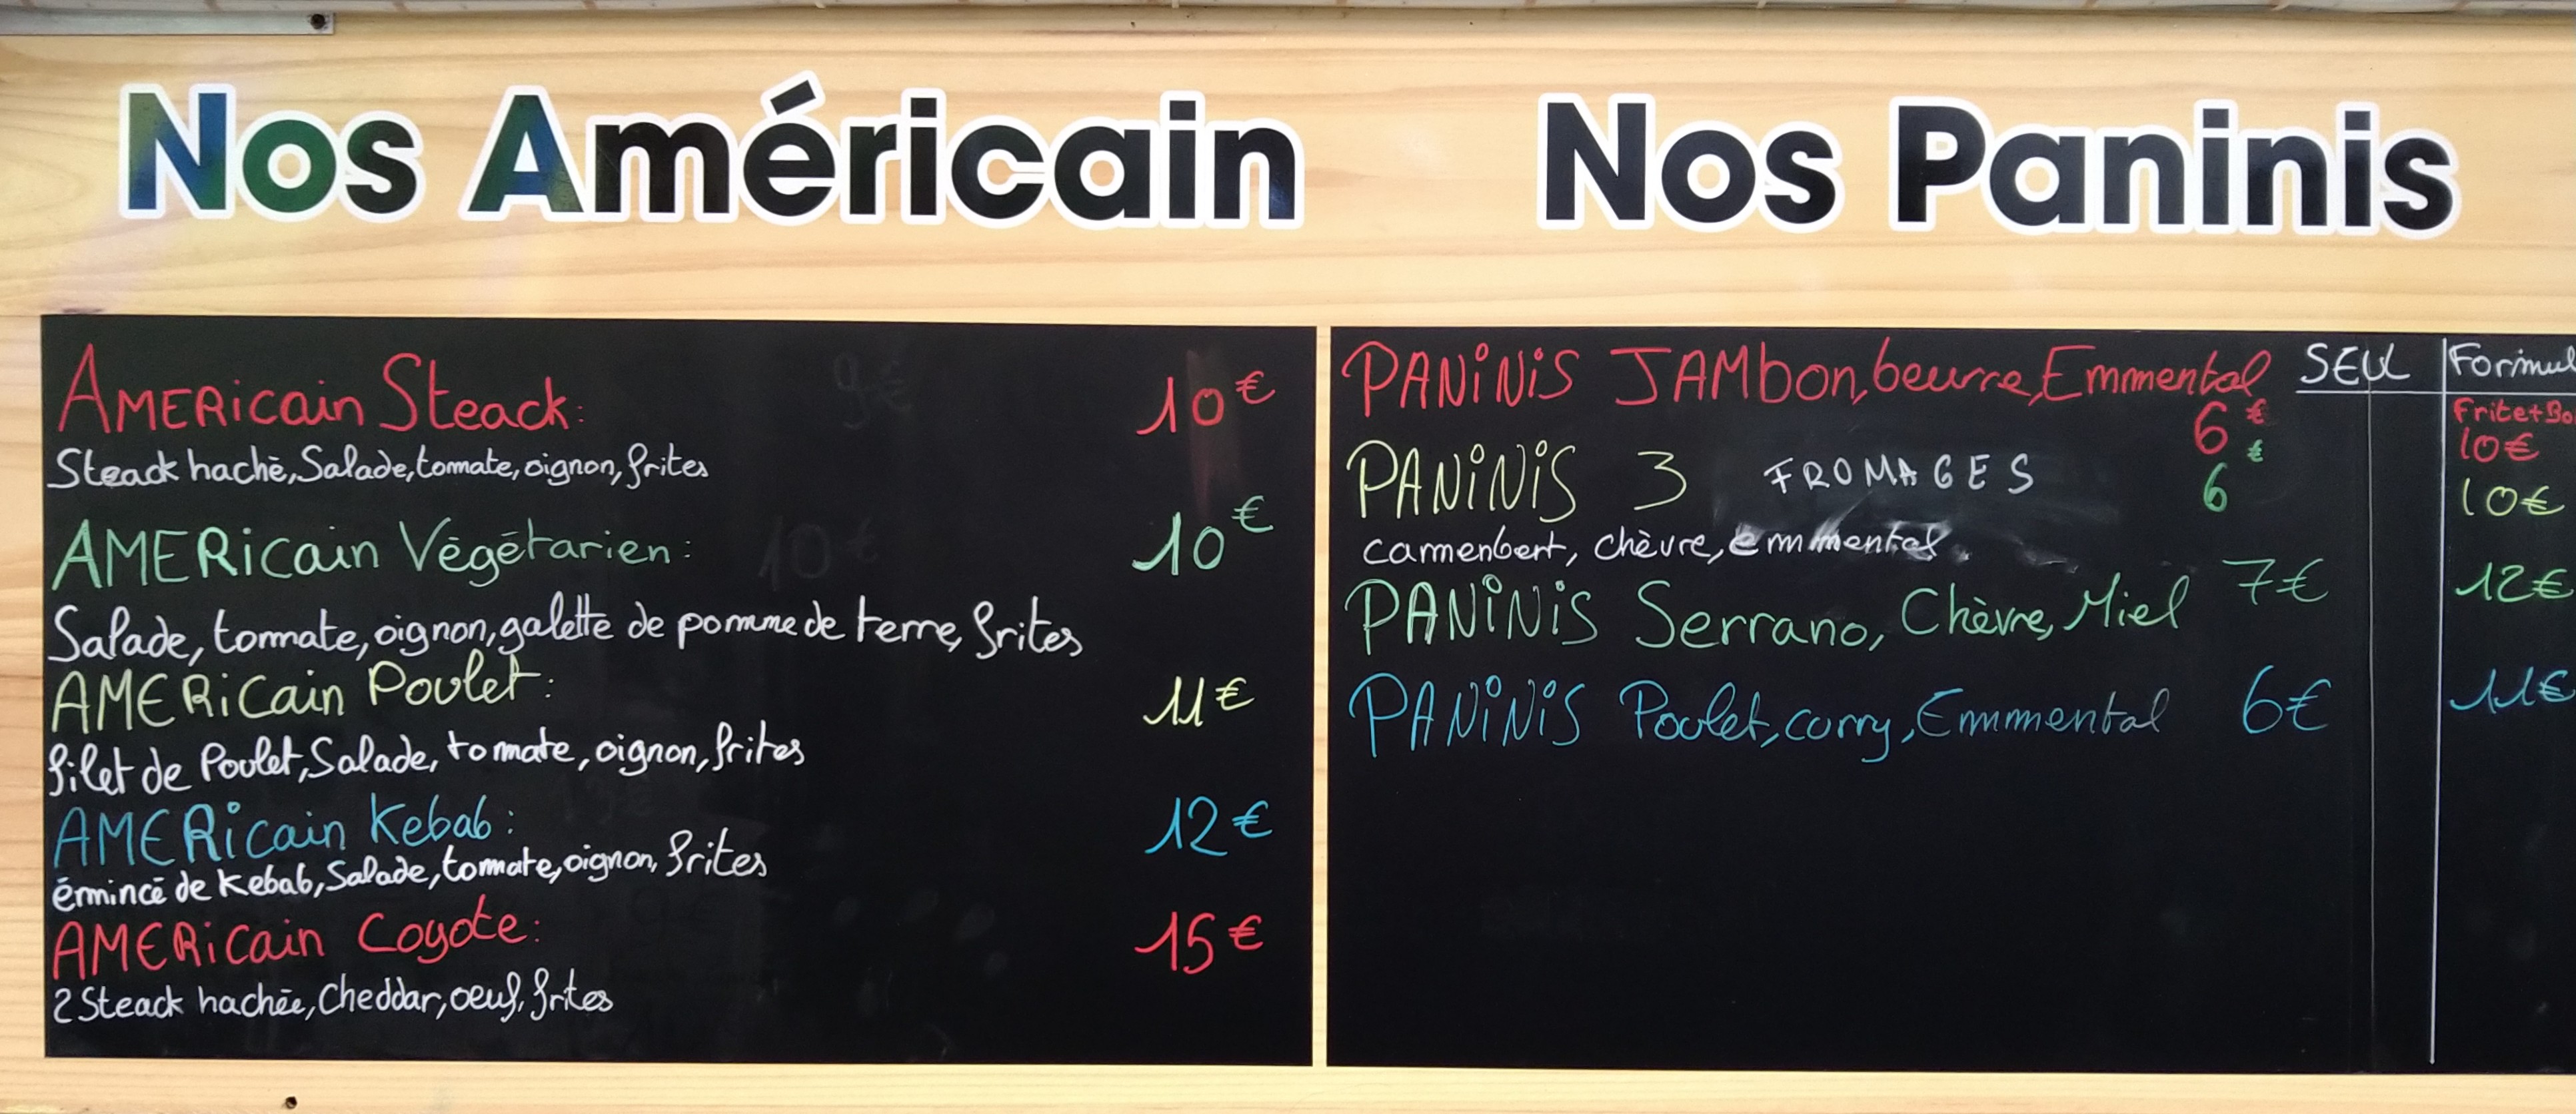 Nos Américain
AMERicain Steack: 10€
Steack haché, Salade, tomate, oignon, frites
AMERicain Végétarien: 10€
Salade, tomate, oignon, galette de pomme de terre, frites
AMERicain Poulet: 11€
filet de Poulet, Salade, tomate, oignon, frites
AMERicain Kebab: 12€
émincé de Kebab, Salade, tomate, oignon, frites
AMERicain Coyote: 15€
2 Steack hachée, Cheddar, oeuf, frites
Nos Paninis
SEUL Formul
PANiNiS JAMbon, beurre, Emmental 6€ Frite+Bo 10€
PANiNiS 3 FROMAGES 6€ 10€
camenbert, chèvre, emmental.
PANiNiS Serrano, Chèvre, Miel 7€ 12€
PANiNiS Poulet, curry, Emmental 6€ 11€